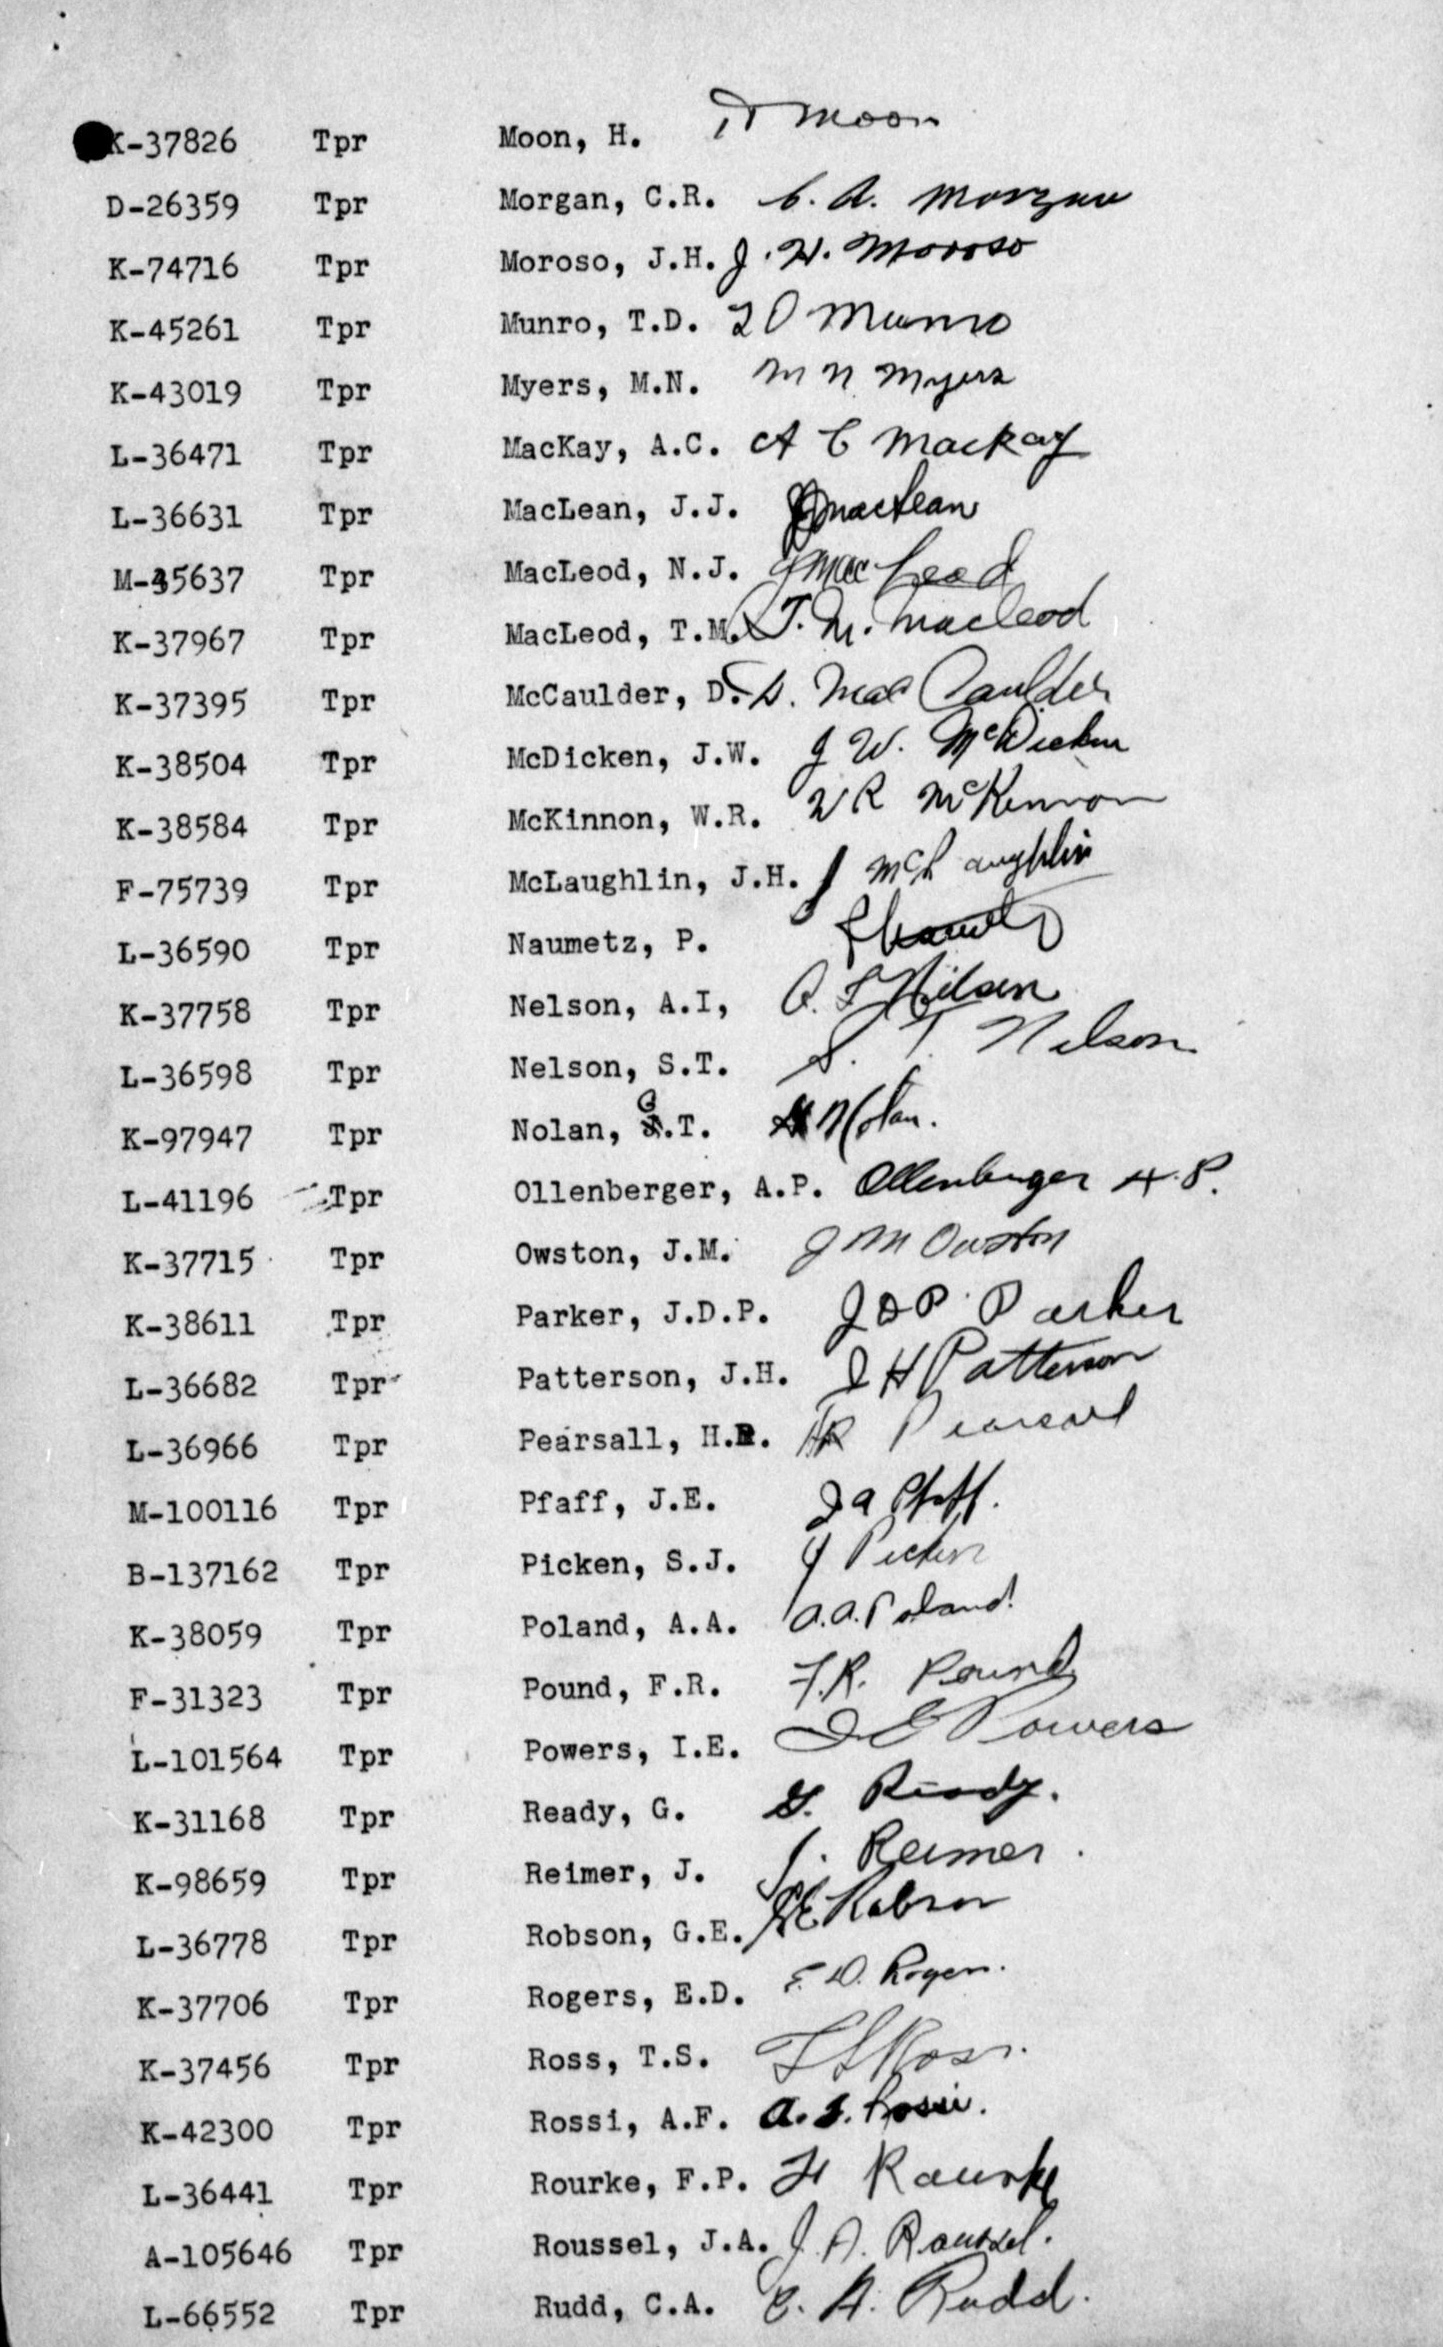 K-37826 Tpr Moon, H. H Moon
D-26359 Tpr Morgan, C.R. C. R. Morgan
K-74716 Tpr Moroso, J.H. J. H. Moroso
K-45261 Tpr Munro, T.D. T D Munro
K-43019 Tpr Myers, M.N. M N Myers
L-36471 Tpr MacKay, A.C. A C Mackay
L-36631 Tpr MacLean, J.J. JJ MacLean
M-35637 Tpr MacLeod, N.J. MacLeod
K-37967 Tpr MacLeod, T.M. T. M. MacLeod
K-37395 Tpr McCaulder, D. D. MacCaulder
K-38504 Tpr McDicken, J.W. J W. McDicken
K-38584 Tpr McKinnon, W.R. W R McKinnon
F-75739 Tpr McLaughlin, J.H. J McLaughlin
L-36590 Tpr Naumetz, P.
K-37758 Tpr Nelson, A.I, A. I Nelson
L-36598 Tpr Nelson, S.T. S. T. Nelson
K-97947 Tpr Nolan, G.T. Nolan.
L-41196 Tpr Ollenberger, A.P. Ollenberger A.P.
K-37715 Tpr Owston, J.M. J M Owston
K-38611 Tpr Parker, J.D.P. J D P Parker
L-36682 Tpr Patterson, J.H. J H Patterson
L-36966 Tpr Pearsall, H.R. HR Pearsall
M-100116 Tpr Pfaff, J.E. Pfaff.
B-137162 Tpr Picken, S.J. Picken
K-38059 Tpr Poland, A.A. A.A. Poland.
F-31323 Tpr Pound, F.R. F.R. Pound
L-101564 Tpr Powers, I.E. I E Powers
K-31168 Tpr Ready, G. G. Ready.
K-98659 Tpr Reimer, J. J. Reimer.
L-36778 Tpr Robson, G.E. GE Robson
K-37706 Tpr Rogers, E.D. E. D. Rogers.
K-37456 Tpr Ross, T.S. T S Ross.
K-42300 Tpr Rossi, A.F. A. F. Rossi.
L-36441 Tpr Rourke, F.P. Rourke
A-105646 Tpr Roussel, J.A. J. A. Roussel.
L-66552 Tpr Rudd, C.A. C. A. Rudd.